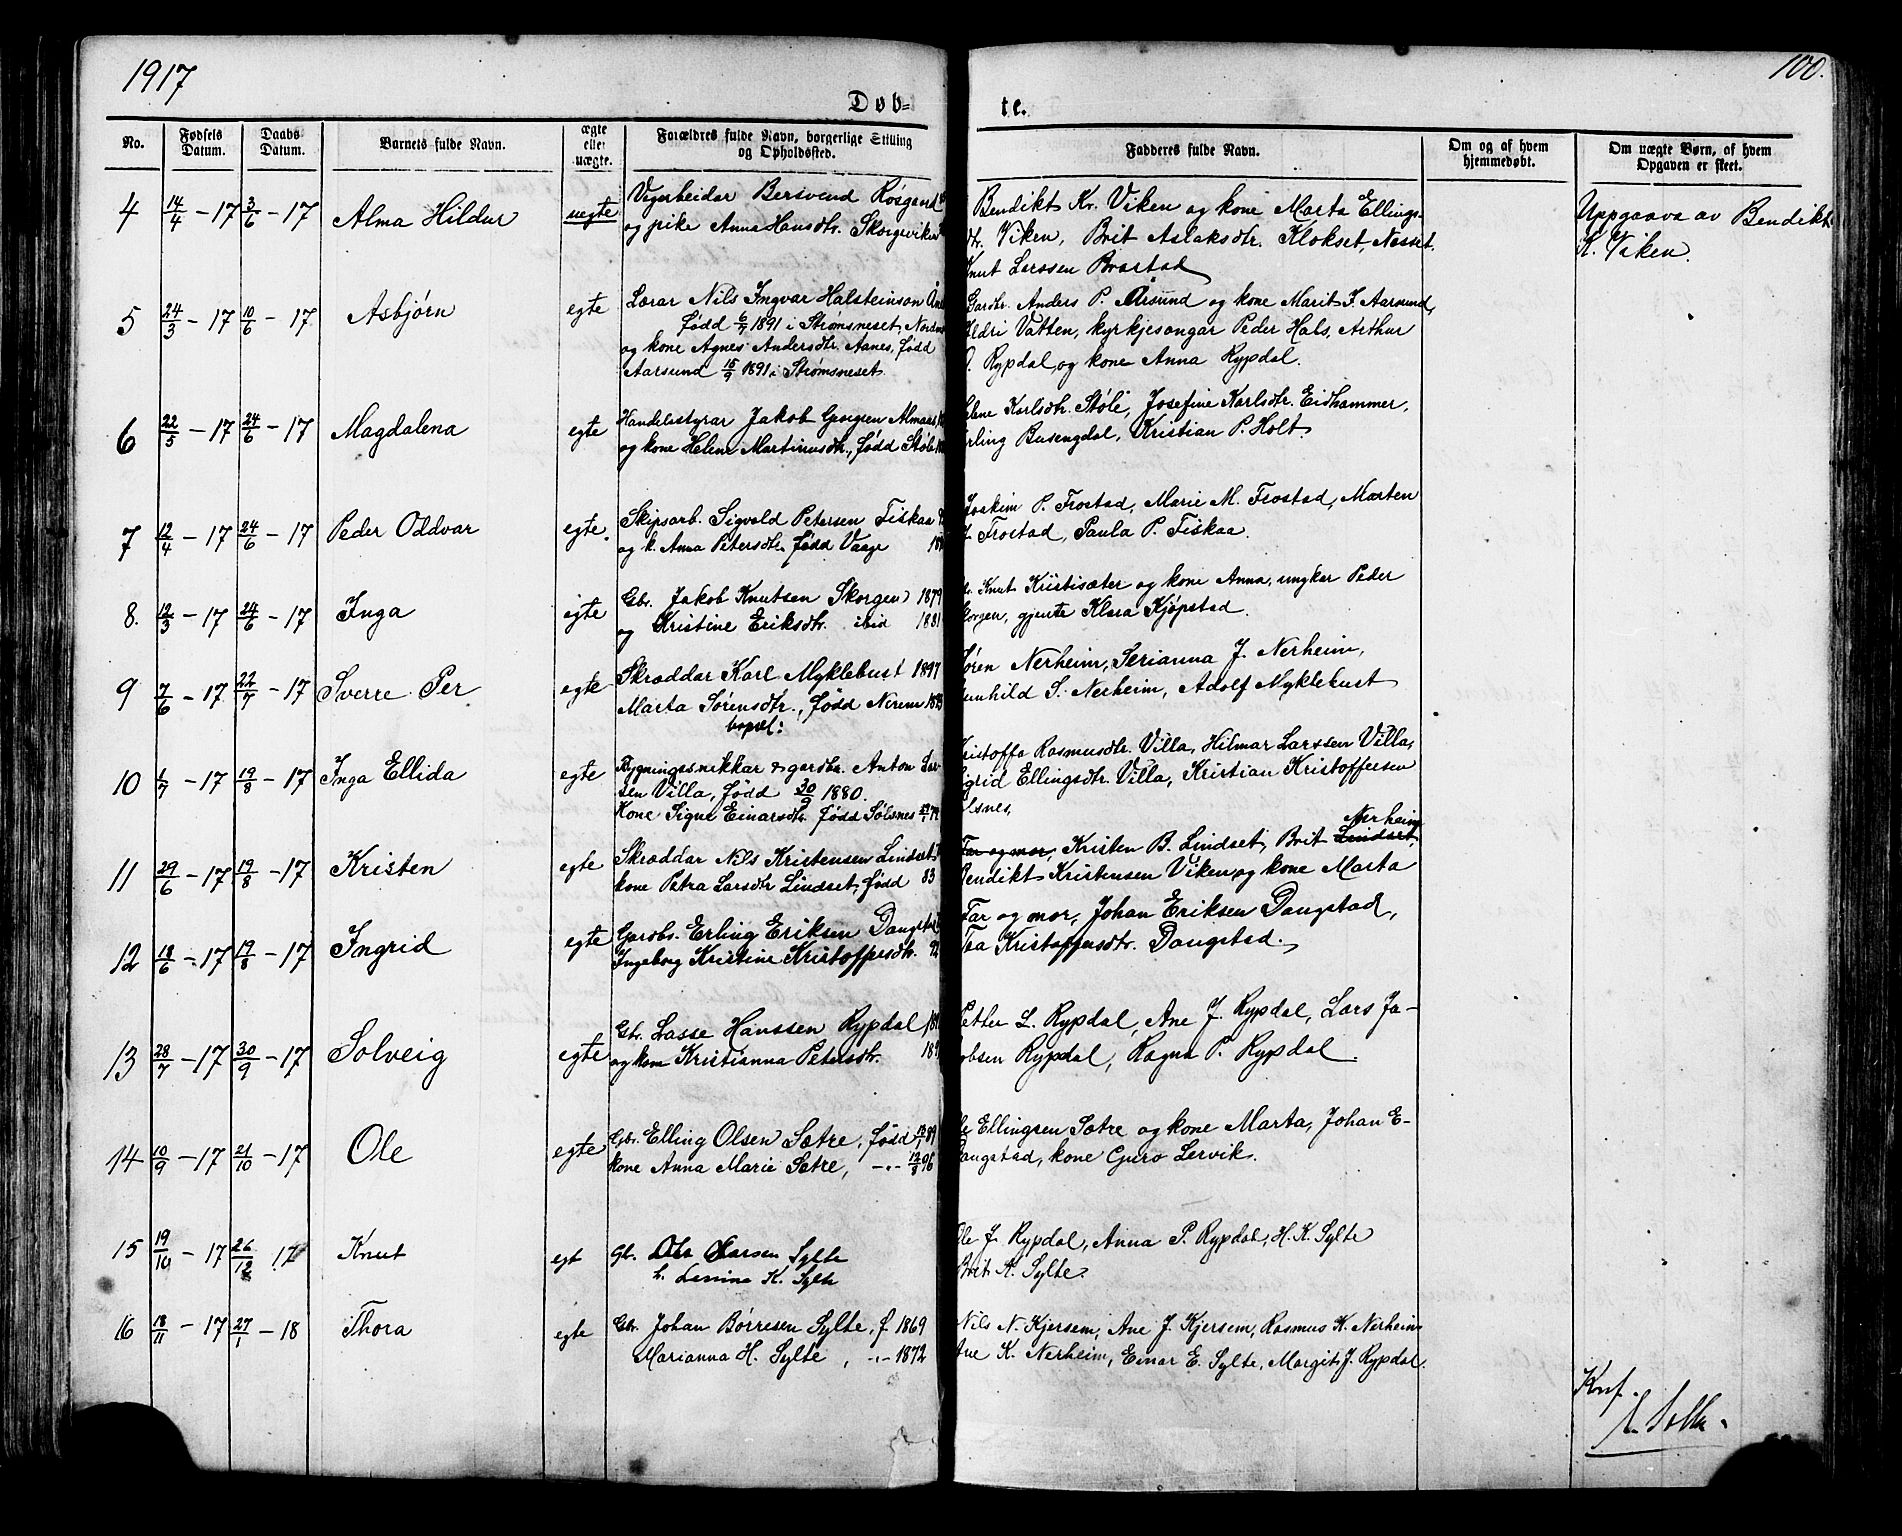 1917
100.
Døb-
te.
No.
Fødsels Datum.
Daabs Datum.
Barnets fulde Navn.
ægte eller uægte.
Forældres fulde Navn, borgerlige Stilling og Opholdssted.
Fadderes fulde Navn.
Om og af hvem hjemmedøbt.
Om uægte Børn, af hvem Opgaven er skeet.
4 14/4 - 17 3/6 - 17 Alma Hildur uegte
Vegarbeidar Bersvend Røsgard
og pike Anna Hansdtr. Skorgeviken
Bendikt Kr. Viken og kone Marta Ellings-
dtr. Viken, Brit Aslaksdtr. Klokset, Nesset,
Knut Larssen Brastad
Uppgaava av Bendikt
K. Viken.
5 24/3 - 17 10/6 - 17 Asbjørn egte
Lærar Nils Ingvar Halsteinson
Fødd 6/7 1891 i Strømsneset,
og kone Agnes Andersdtr. Aanes, fødd
Aarsund 15/9 1891 i Strømsneset
Gardbr. Anders P. Årsund og kone Marit J. Aarsund,
Eldri Vatten, kyrkjesongar Peder Hals, Arthur
Rypdal og kone Anna Rypdal.
6 22/5 - 17 24/6 - 17 Magdalena egte
Handelsstyrar Jakob Georgsen Almaas
og kone Helene Martinusdtr., fødd Støle
Karlsdtr. Støle, Josefine Karlsdtr. Eidhammer,
Erling Busengdal, Kristian P. Holt.
7 12/4 - 17 24/6 - 17 Peder Oddvar egte.
Skipsarb. Sigvald Petersen Fiskaa
og k. Anna Petersdtr. fødd Vaage
Joakim P. Frostad, Marie M. Frostad, Marten
Frostad, Paula P. Fiskaa.
8. 12/3 - 17 24/6 - 17 Inga egte
Gbr. Jakob Knutsen Skorgen 1879
og Kristine Eriksdtr. ibid 1881
Knut Kristisæter og kone Anna, ungkar Peder
Skorgen, gjente Klara Kjøpstad.
9 7/6 - 17 22/7 - 17 Sverre Per egte
Skræddar Karl Myklebust 1897
Marta Sørensdtr., fødd Nerem
bopæl:
Søren Nerheim, Serianna J. Nerheim,
Gunhild S. Nerheim, Adolf Myklebust
10 1/7 - 17 19/8 - 17 Inga Ellida egte
Bygningssnikkar & gardbr. Anton Lar-
sen Villa, fødd 30/9 1880.
Kone Signe Einarsdtr. fødd Sølsnes
Kristoffa Rasmusdtr. Villa, Hilmar Larssen Villa,
Sigrid Ellingsdtr. Villa, Kristian Kristoffersen
Sølsnes,
Nerheim
11 29/6 - 17 19/8 - 17 Kristen egte
Skræddar Nils Kristensen Lindset
kone Petra Larsdtr Lindset, fødd 83
Far og mor, Kristen B. Lindset, Brit Lindset,
Bendikt Kristensen Viken og kone Marta
12 18/6 - 17 19/8 - 17 Ingrid egte
Gardbr. Erling Eriksen Daugstad
Ingeborg Kristine Kristoffersdtr. 92
Far og mor, Johan Eriksen Daugstad,
Kristoffersdtr. Daugstad.
13 28/7 - 17 30/9 - 17 Solveig egte
Gbr. Lasse Hanssen Rypdal
og kone Kristianna Petersdtr.
Petter L. Rypdal, Ane J. Rypdal, Lars Ja-
kobsen Rypdal, Ragna P. Rypdal.
14 10/9 - 17 21/10 - 17 Ole egte
Gbr. Elling Olsen Sætre, fødd 89
kone Anna Marie Sætre, -"- 12/8 96
Ole Ellingsen Sætre og kone Marta, Johan E-
Daugstad, kone Guro Lervik.
15 19/10 - 17 26/12 17 Knut egt
Gb. Ole Larsen Sylte
h. Lenina K. Sylte
Ole J. Rypdal, Anna P. Rypdal, H. K. Sylte
Brit A. Sylte.
16 18/11 - 17 27/1 - 18 Thora egte
Gbr. Johan Børresen Sylte, f. 1869
Marianna H. Sylte, -"- 1872
Nils N. Kjersem, Ane J. Kjersem, Rasmus K. Nerheim
Ane K. Nerheim, Einar E. Sylte, Margit J. Rypdal.
Knf.